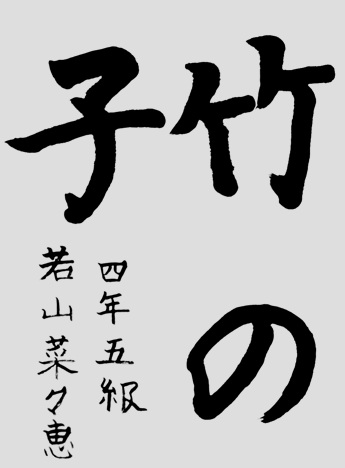 竹の
子
四年五級
若山菜々恵